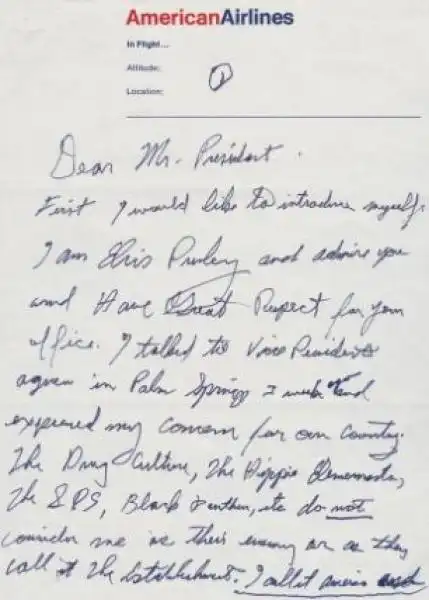 AmericanAirlines
In Flight...
Altitude:
Location:
1
Dear Mr. President.
First I would like to introduce myself.
I am Elvis Presley and admire you
and Have Great Respect for your
office. I talked to Vice President
Agnew in Palm Springs 3 weeks and
expressed my concern for our country.
The Drug Culture, The Hippie Elements,
The SDS, Black Panthers, etc do not
consider me as their enemy or as they
call it the Establishment. I call it America and